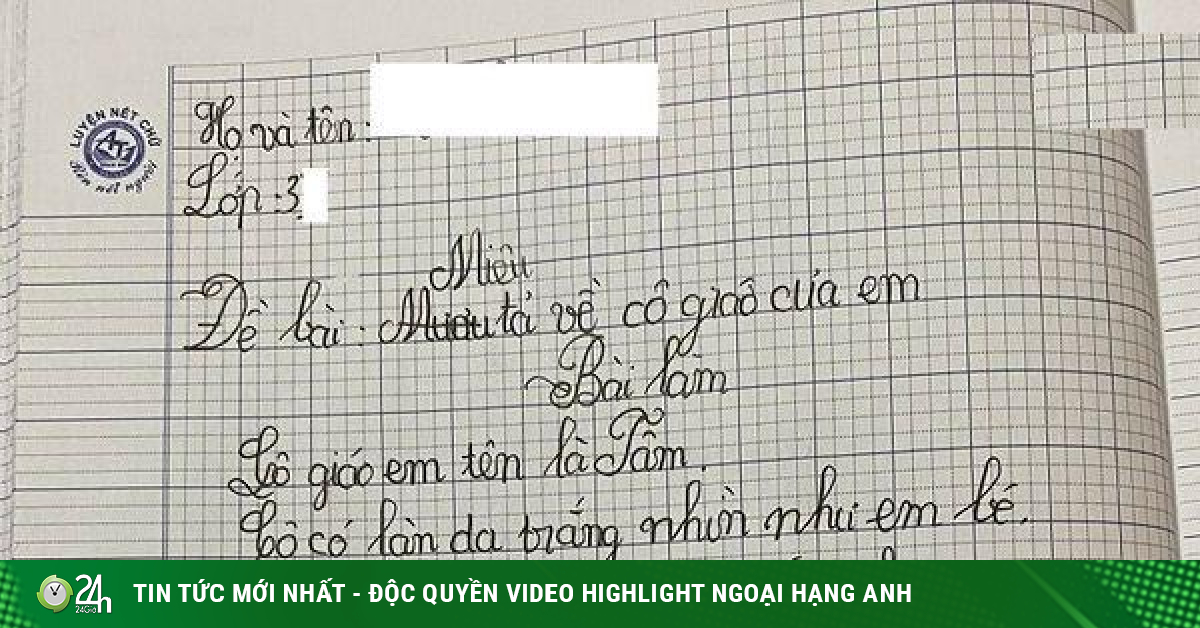 LUYỆN NÉT CHỮ
Rèn nết người
Họ và tên:
Lớp: 3
Miêu
Đề bài: tả về cô giaó của em
Bài làm
Cô giáo em tên là Tâm.
Cô có làn da trắng nhìn như em bé.
24h
24Giờ
TIN TỨC MỚI NHẤT - ĐỘC QUYỀN VIDEO HIGHLIGHT NGOẠI HẠNG ANH